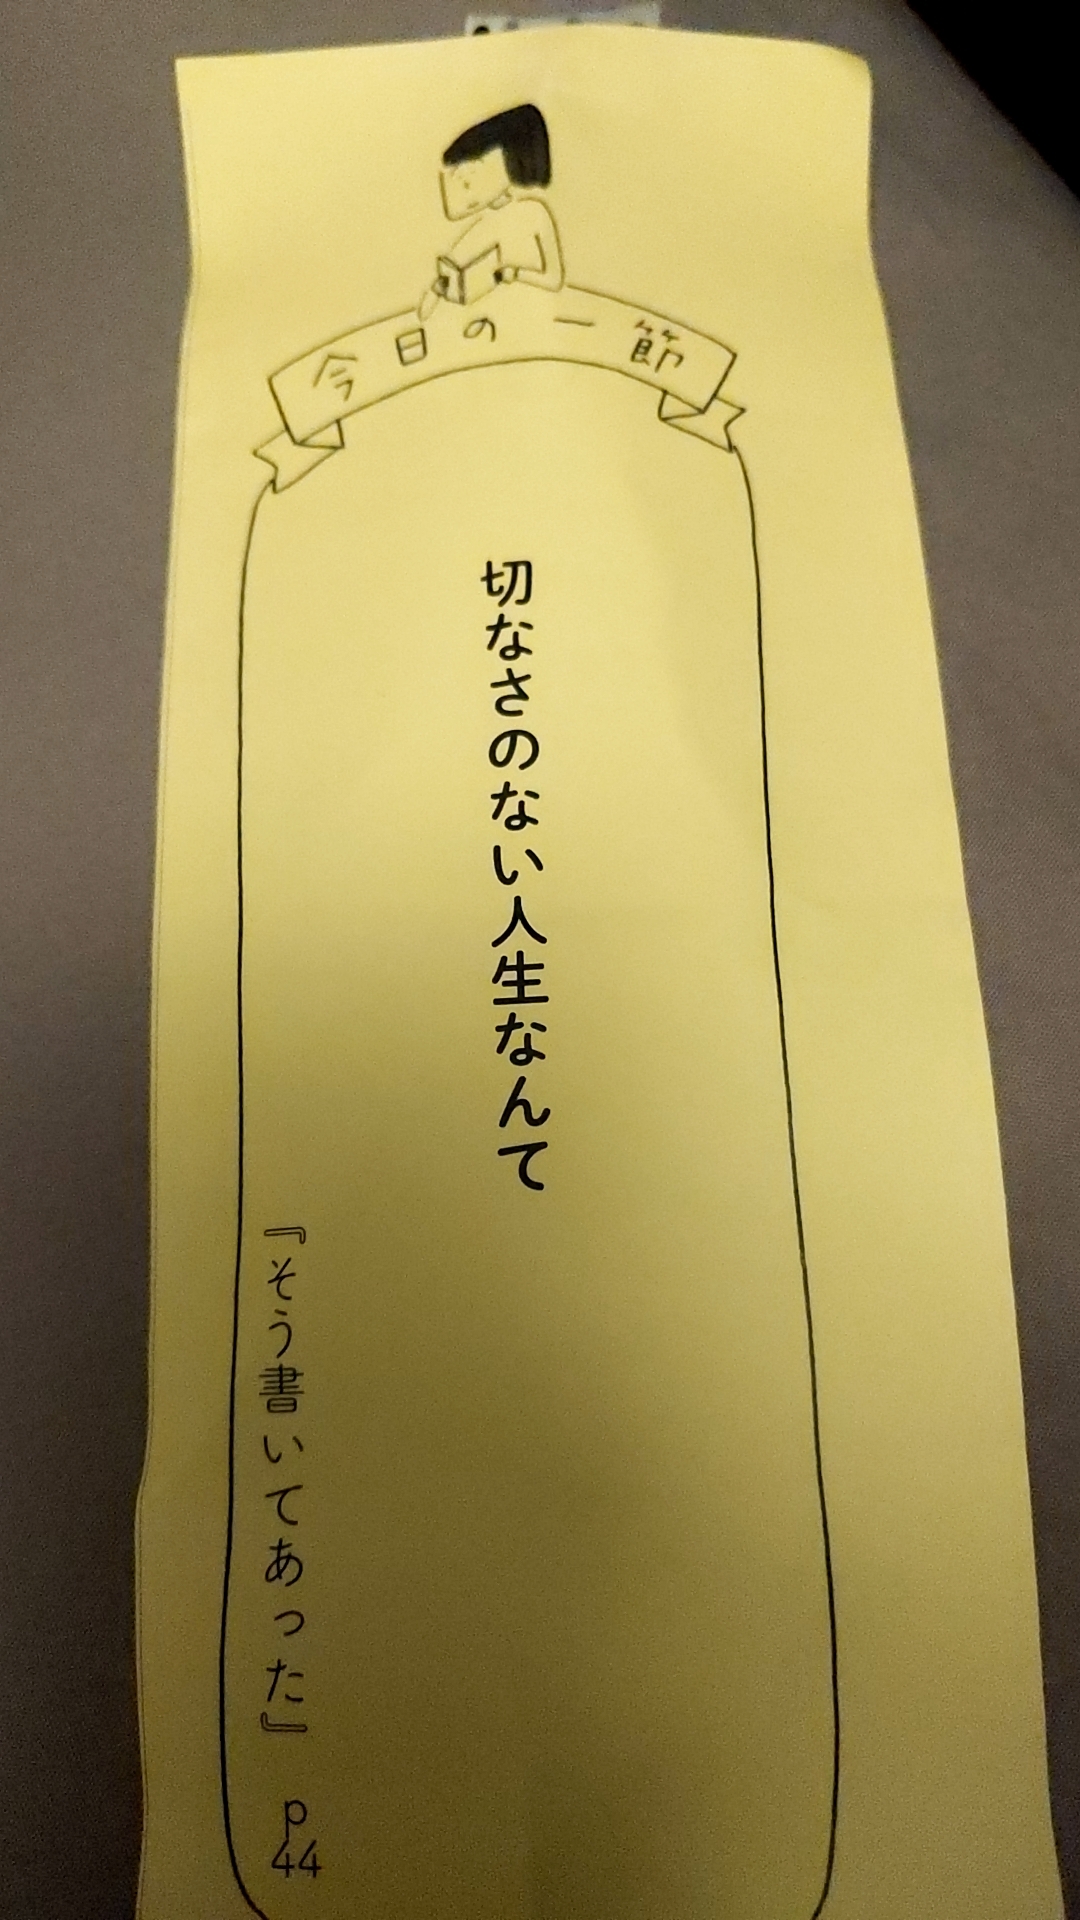 今日の一節
切なさのない人生なんて
『そう書いてあった』 p44